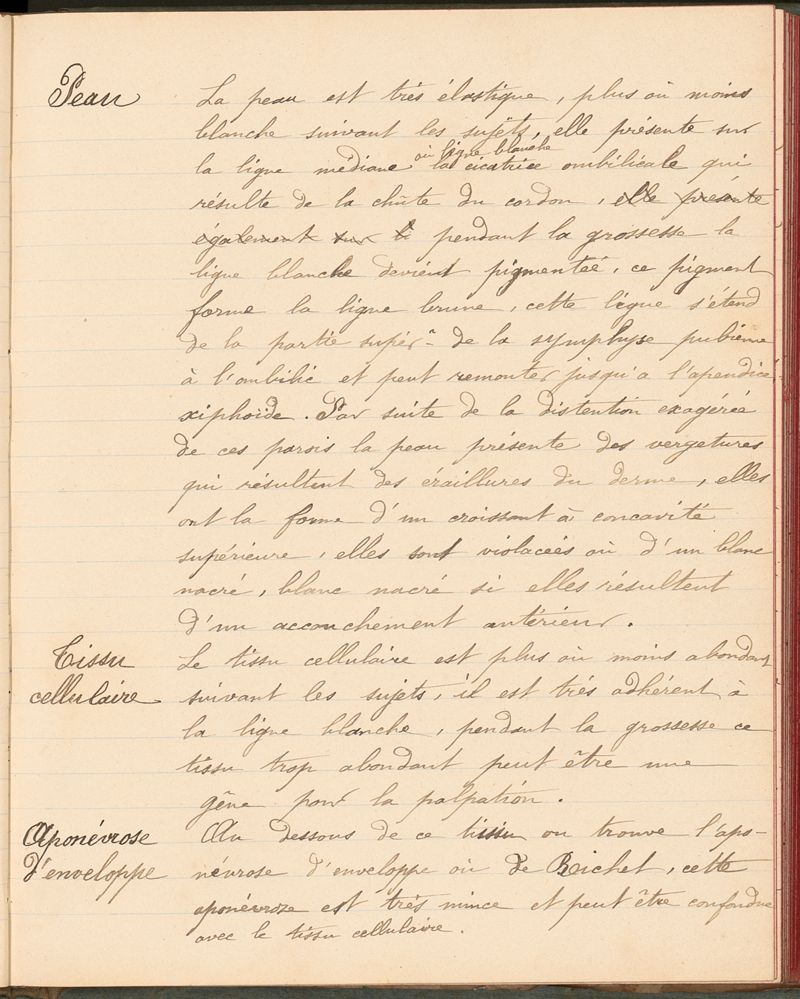 Peau
La peau est très élastique, plus où moins
blanche suivant les sujêts, elle présente sur
où ligne blanche
la ligne médiane la cicatrice ombilicale qui
résulte de la chûte du cordon, elle présente
également sur li pendant la grossesse la
ligne blanche devient pigmenteé, ce pigment
forme la ligne brune, cette ligne s'étend
de la partie supér.re de la symphyse pubienne
à l'ombilic et peut remonter jusqu'a l'apendice
xiphoïde. Par suite de la distention exagérée
de ces parois la peau présente des vergetures
qui résultent des éraillures du derme, elles
ont la forme d'un croissant à concavité
supérieure, elles sont violacées où d'un blanc
nacré, blanc nacré si elles résultent
d'un accouchement antérieur.
Tissu
cellulaire
Le tissu cellulaire est plus où moins abondant
suivant les sujets, il est très adhérent à
la ligne blanche, pendant la grossesse ce
tissu trop abondant peut être une
gêne pour la palpation.
Aponévrose
d'enveloppe
Au dessous de ce tissu on trouve l'apo-
névrose d'enveloppe où de Richet, cette
aponévroze est très mince et peut être confondue
avec le tissu cellulaire.